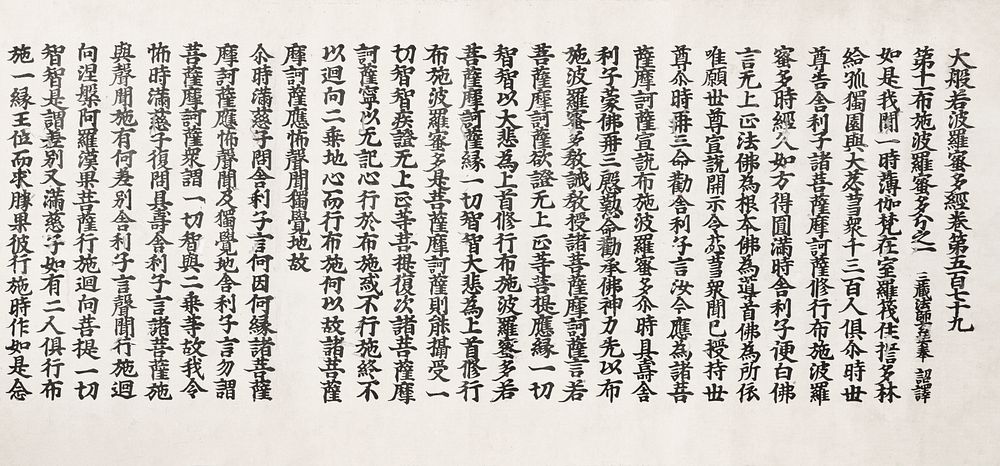 大般若波羅蜜多經卷第五百七十九
第十一布施波羅蜜多分之一 三藏法師玄奘奉 詔譯
如是我聞一時薄伽梵在室羅筏住誓多林
給孤獨園與大苾芻衆千二百人俱尒時世
尊告舍利子諸菩薩摩訶薩修行布施波羅
蜜多時經八如方得圓滿時舍利子便白佛
言无上正法佛為根本佛為導首佛為所依
唯願世尊宣說開示令苾芻衆聞已授持世
尊尒時再三命勸舍利子言汝今應為諸菩
薩摩訶薩宣說布施波羅蜜多尒時具壽舍
利子蒙佛再三殷懃命勸承佛神力先以布
施波羅蜜多教誡教授諸菩薩摩訶薩言若
菩薩摩訶薩欲證无上正等菩提應緣一切
智智以大悲為上首修行布施波羅蜜多若
菩薩摩訶薩緣一切智智大悲為上首修行
布施波羅蜜多是菩薩摩訶薩則能攝受一
切智智疾證无上正等菩提復次諸菩薩摩
訶薩寧以无記心行於布施或不行施終不
以迴向二乘地心而行布施何以故諸菩薩
摩訶薩應怖聲聞獨覺地故
尒時滿慈子問舍利子言何因何緣諸菩薩
摩訶薩應怖聲聞及獨覺地舍利子言勿謂
菩薩摩訶薩衆謂一切智與二乘等故我令
怖時滿慈子復問具壽舍利子言諸菩薩施
與聲聞施有何差別舍利子言聲聞行施迴
向涅槃阿羅漢果菩薩行施迴向菩提一切
智智是謂差別又滿慈子如有二人俱行布
施一緣王位而求勝果彼行施時作如是念